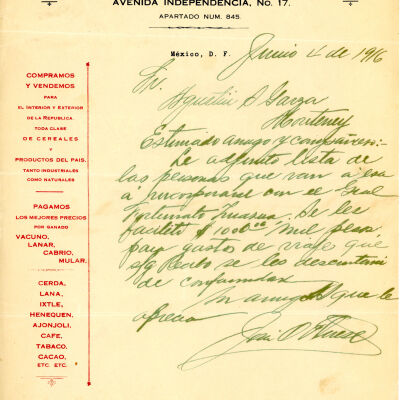 AVENIDA INDEPENDENCIA, No. 17.
APARTADO NUM. 845.
México, D. F.
Junio 4 de 1916
COMPRAMOS
Y VENDEMOS
PARA
EL INTERIOR Y EXTERIOR
DE LA REPUBLICA,
TODA CLASE
DE CEREALES
Y
PRODUCTOS DEL PAIS,
TANTO INDUSTRIALES
COMO NATURALES
PAGAMOS
LOS MEJORES PRECIOS
POR GANADO
VACUNO,
LANAR,
CABRIO,
MULAR.
CERDA,
LANA,
IXTLE,
HENEQUEN,
AJONJOLI,
CAFE,
TABACO,
CACAO,
ETC. ETC.
Sr.
Agustin S Garza
Monterrey
Estimado amigo y compañero:-
Le adjunto lista de
las personas que van a esa
á incorporarse con el Gral
Fortunato Zuazua. Se les
facilitó $ 1000.00 mil pesos
para gastos de viaje que
s/g recibo se les descontará
de conformidad
Su amigo que le
aprecia
José